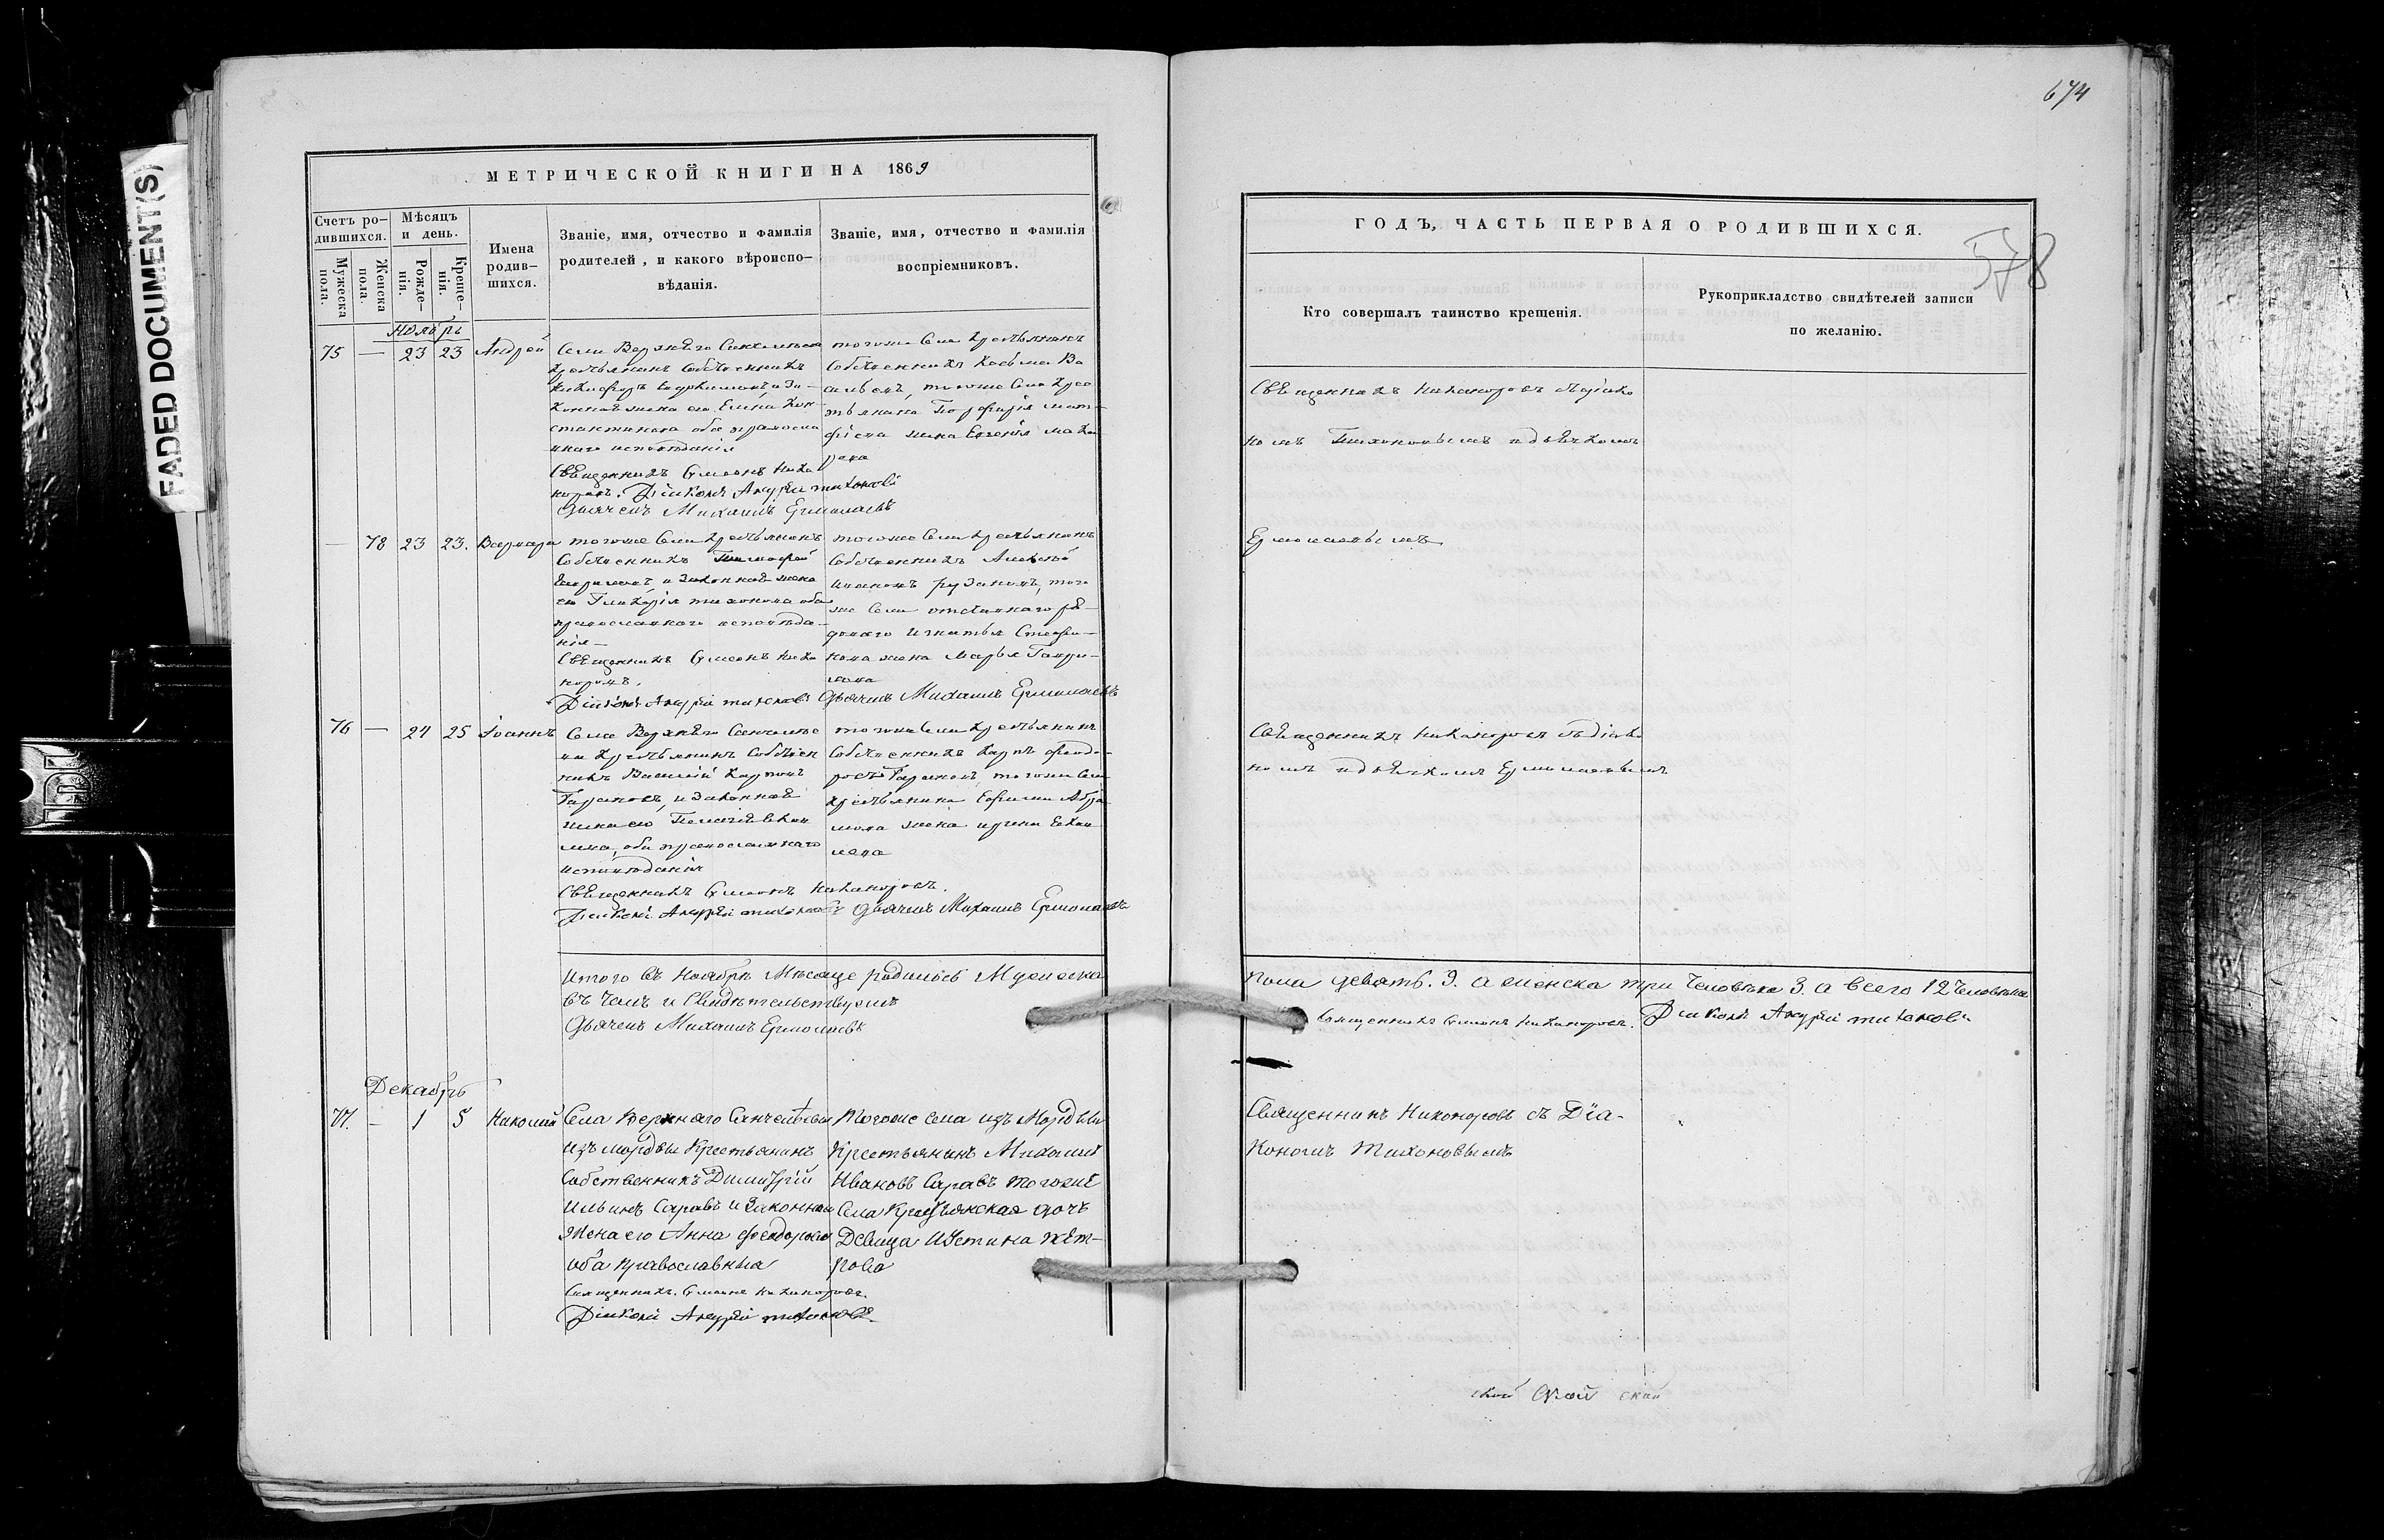 FADED DOCUMENT(S)
674
578
МЕТРИЧЕСКОЙ КНИГИ НА 1869
Счетъ ро-
дившихся.
Мужеска
пола.
Женска
пола.
Мѣсяцъ
и день.
Рожде-
нія.
Креще-
нія.
Имена
родив-
шихся.
Званіе, имя, отчество и фамилія
родителей, и какого вѣроиспо-
вѣданія.
Званіе, имя, отчество и фамилія
воспріемниковъ.
Ноябрь
75 — 23 23 Андрей
Села Верхняго
крестьянинъ собственникъ
и за-
конная жена его Елена Кон-
стантинова оба православ
наго исповѣданія
Священникъ Симеонъ Ника
норовъ. Діаконъ Андрей Тихоновъ
Дьячекъ Михаилъ Ермолаевъ
тогоже села крестьянинъ
собственникъ Козьма Ва
сильевъ, тогоже села крес
тьянина Порфирія Мат-
фіева жена Евгенія Мака
рова
— 78 23 23. Варвара
тогоже села крестьянинъ
собственникъ Тимофей
и законная жена
его Гликерія Тихонова оба
православнаго исповѣда-
нія —
Священникъ Симеонъ Ника
норовъ.
Діаконъ Андрей Тихоновъ Дьячекъ Михаилъ Ермолаевъ
тогоже села крестьянинъ
собственникъ Алексѣй
того
же села отставнаго ря-
доваго Игнатья Стефа-
нова жена Марья Гаври-
лова
76 — 24 25 Іоаннъ
Села Верхняго Санчелее
ва крестьянинъ собствен
никъ Василій Карповъ
и законная
жена его Пелагія
оба православнаго
исповѣданія
Священникъ Симеонъ Никаноровъ.
Діаконъ Андрей Тихоновъ Дьячекъ Михаилъ Ермолаевъ
тогоже села крестьянинъ
собственникъ Карпъ Феодо-
ровъ тогоже села
крестьянина Ефима Абра
мова жена Ирина
Итого въ Ноябрѣ мѣсяце родилось мужеска
въ чемъ и свидѣтельствуемъ
Дьячекъ Михаилъ Ермолаевъ
Декабрь
77. — 1 5 Николай
Села Верхняго Санчелѣева
изъ мордвы крестьянинъ
собственникъ Димитрій
Ильинъ Саравъ и законная
жена его Анна Феодорова
оба православныя
Священникъ Симеонъ Никаноровъ.
Діаконъ Андрей Тихоновъ
Тогоже села изъ мордвы
крестьянинъ Михаилъ
Ивановъ Саравъ тогоже
села крестьянская дочь
девица Устина Пет-
рова
ГОДЪ, ЧАСТЬ ПЕРВАЯ О РОДИВШИХСЯ.
Кто совершалъ таинство крещенія.
Рукоприкладство свидѣтелей записи
по желанію.
Священникъ Никаноровъ съ діако
номъ Тихоновымъ и дьячкомъ
Ермолаевымъ
Священникъ Никаноровъ съ діако
номъ и дьячкомъ Ермолаевымъ
пола девять. 9. а женска три человѣка 3. а всего 12 человѣкъ
Священникъ Симеонъ Никаноровъ. Діаконъ Андрей Тихоновъ
Священникъ Никоноровъ съ Діа-
кономъ Тихоновымъ
ской ской ской